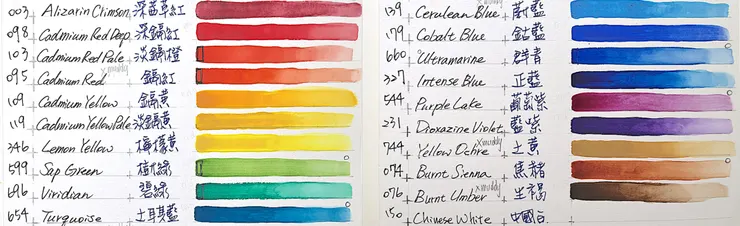 003 Alizarin Crimson 深茜草紅
098 Cadmium Red Deep 深鎘紅
103 Cadmium Red Pale 淡鎘橙
x muddy
095 Cadmium Red 鎘紅
109 Cadmium Yellow 鎘黃
119 Cadmium Yellow Pale 淡鎘黃
346 Lemon Yellow 檸檬黃
599 Sap Green 樹綠
696 Viridian 碧綠
654 Turquoise 土耳其藍
139 Cerulean Blue 蔚藍
179 Cobalt Blue 鈷藍
660 Ultramarine 群青
327 Intense Blue 正藍
544 Purple Lake 葡萄紫
231 Dioxazine Violet 藍紫
x muddy
744 Yellow Ochre 土黃
074 Burnt Sienna 焦赭
x muddy
076 Burnt Umber 生褐
150 Chinese White 中國白